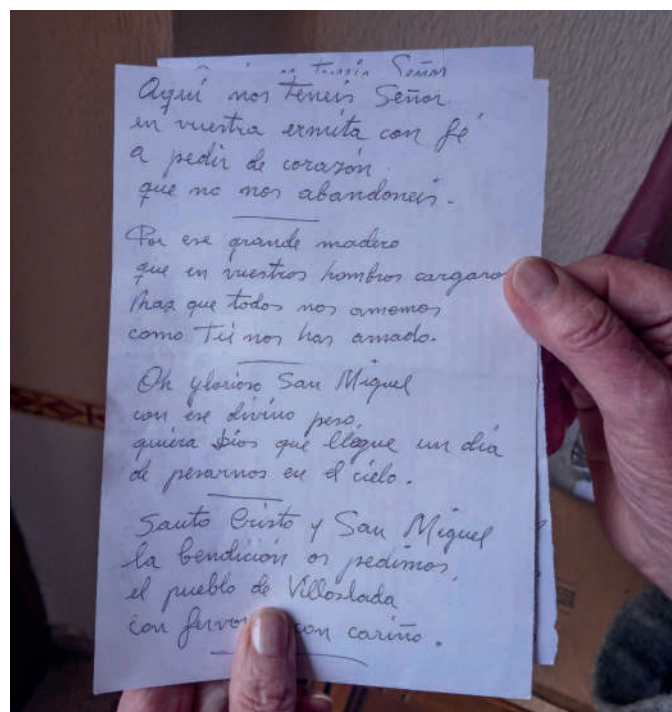 Señor
Aquí nos teneis Señor
en vuestra ermita con fé
a pedir de corazón
que no nos abandoneis.
Por ese grande madero
que en vuestros hombros
haz que todos nos amemos
como Tú nos has amado.
Oh glorioso San Miguel
con ese divino peso,
quiera Dios que llegue un día
de pesarnos en el cielo.
Santo Cristo y San Miguel
la bendición os pedimos,
el pueblo de Villoslada
con con cariño.